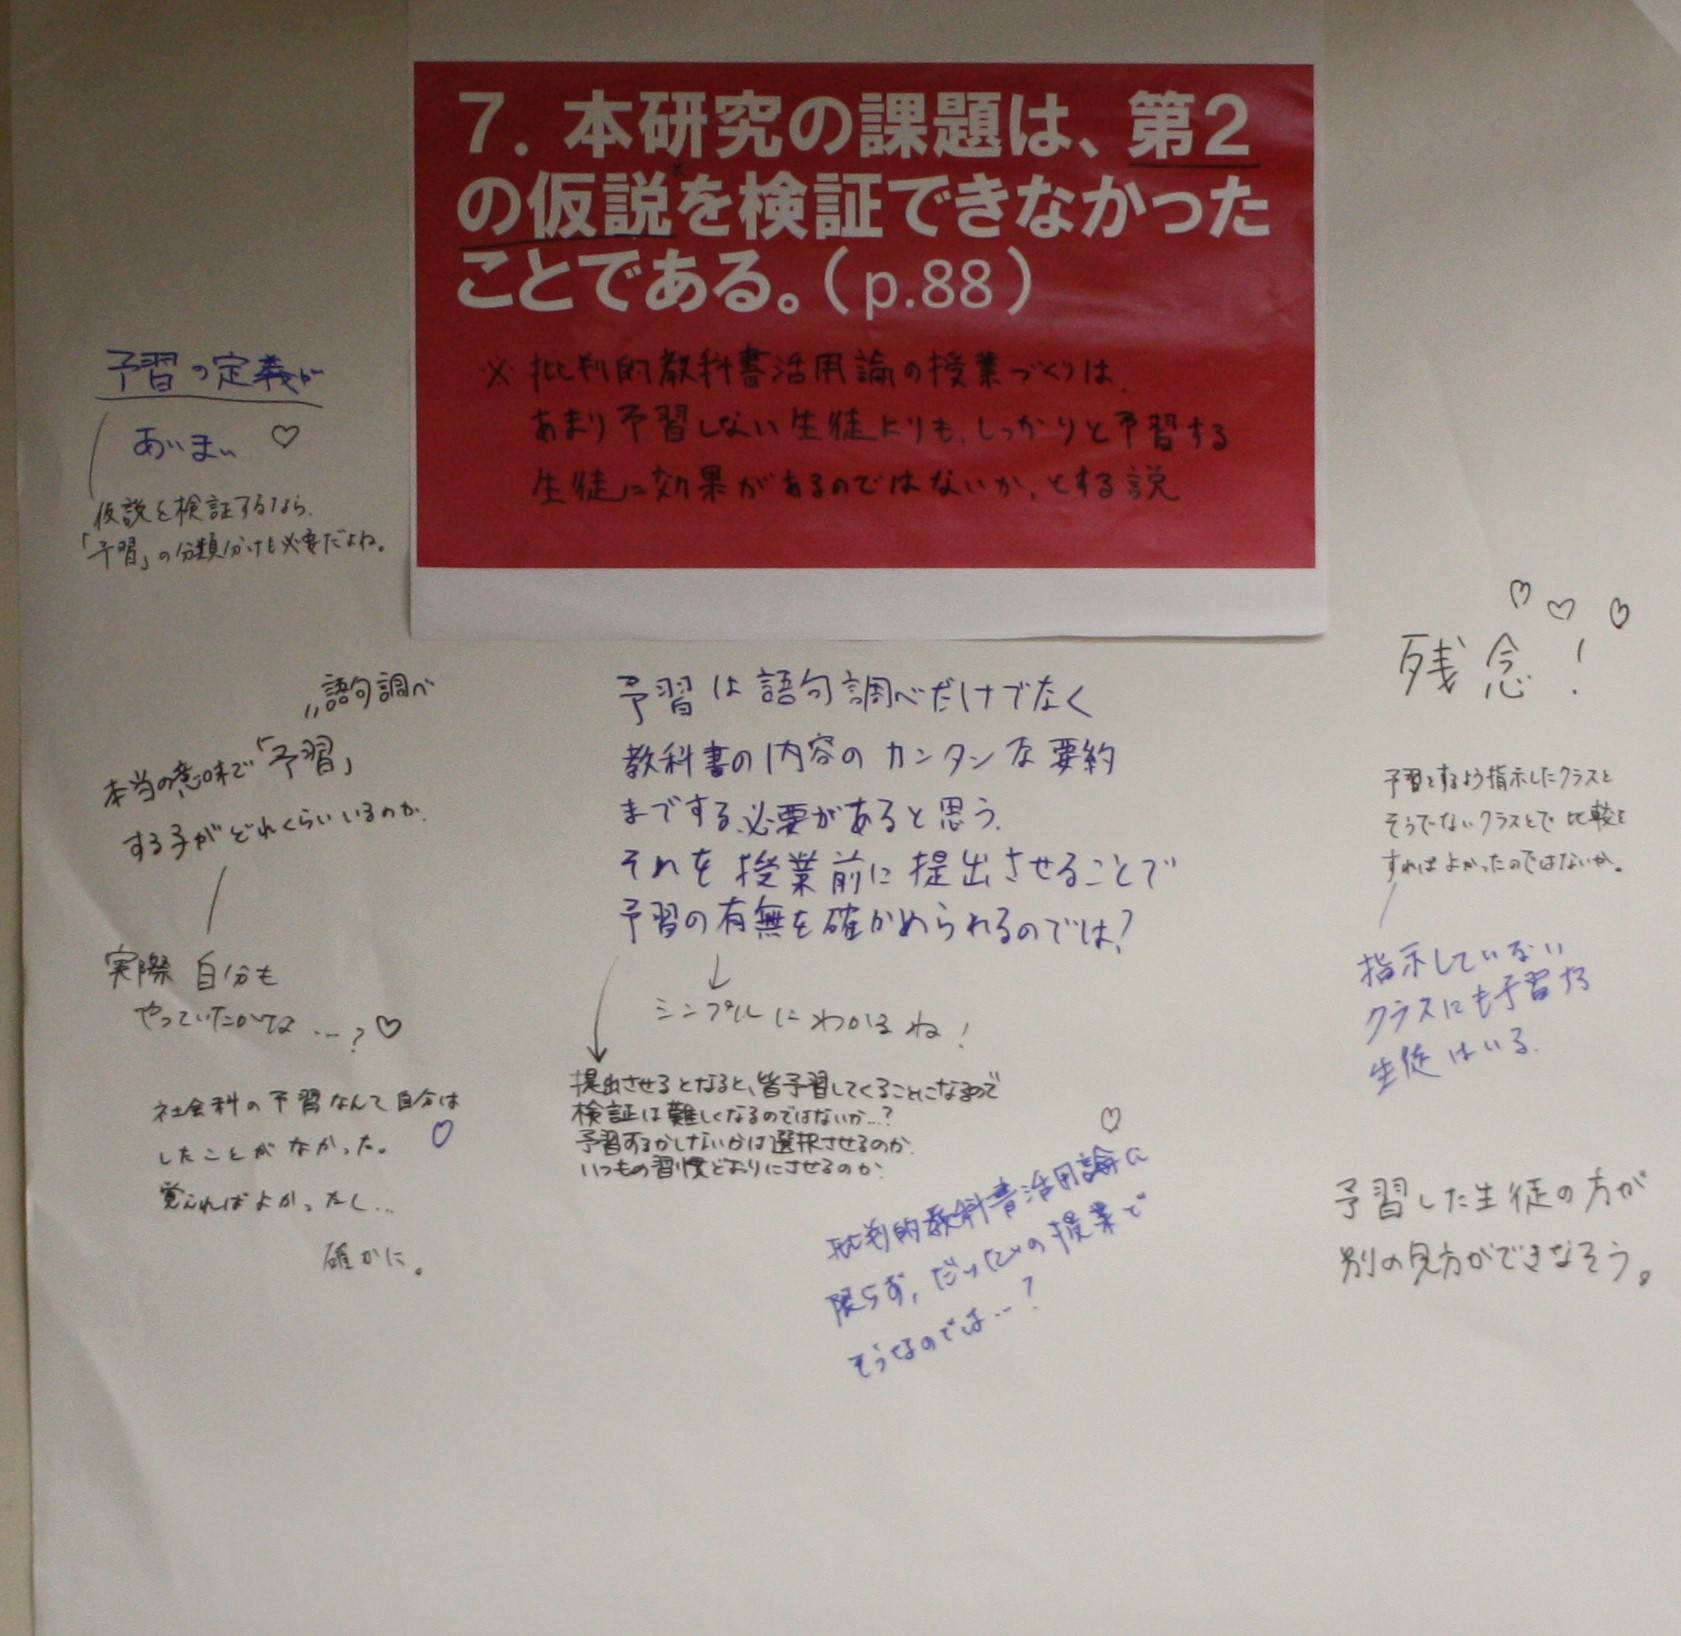 7. 本研究の課題は、第2
の仮説※を検証できなかった
ことである。(p.88)
※ 批判的教科書活用論の授業づくりは、
あまり予習しない生徒よりも、しっかりと予習する
生徒に効果があるのではないか、とする説
予習の定義が
あいまい ♡
仮説を検証するなら、
「予習」の分類分けも必要だよね。
語句調べ
本当の意味で「予習」
する子がどれくらいいるのか。
実際 自分も
やっていたかな…? ♡
社会科の予習なんて自分は
したことがなかった。 ♡
覚えればよかったし…
確かに。
予習は語句調べだけでなく
教科書の内容のカンタンな要約
までする必要があると思う。
それを授業前に提出させることで
予習の有無を確かめられるのでは?
シンプルにわかるね!
提出させるとなると、皆予習してくることになるので
検証は難しくなるのではないか…?
予習するかしないかは選択させるのか、
いつもの習慣どおりにさせるのか。
♡
批判的教科書活用論に
限らず、だいたいの授業で
そうなのでは…?
♡ ♡ ♡
残念!
予習をするよう指示したクラスと
そうでないクラスとで比較を
すればよかったのではないか。
指示していない
クラスにも予習する
生徒はいる。
予習した生徒の方が
別の見方ができなそう。